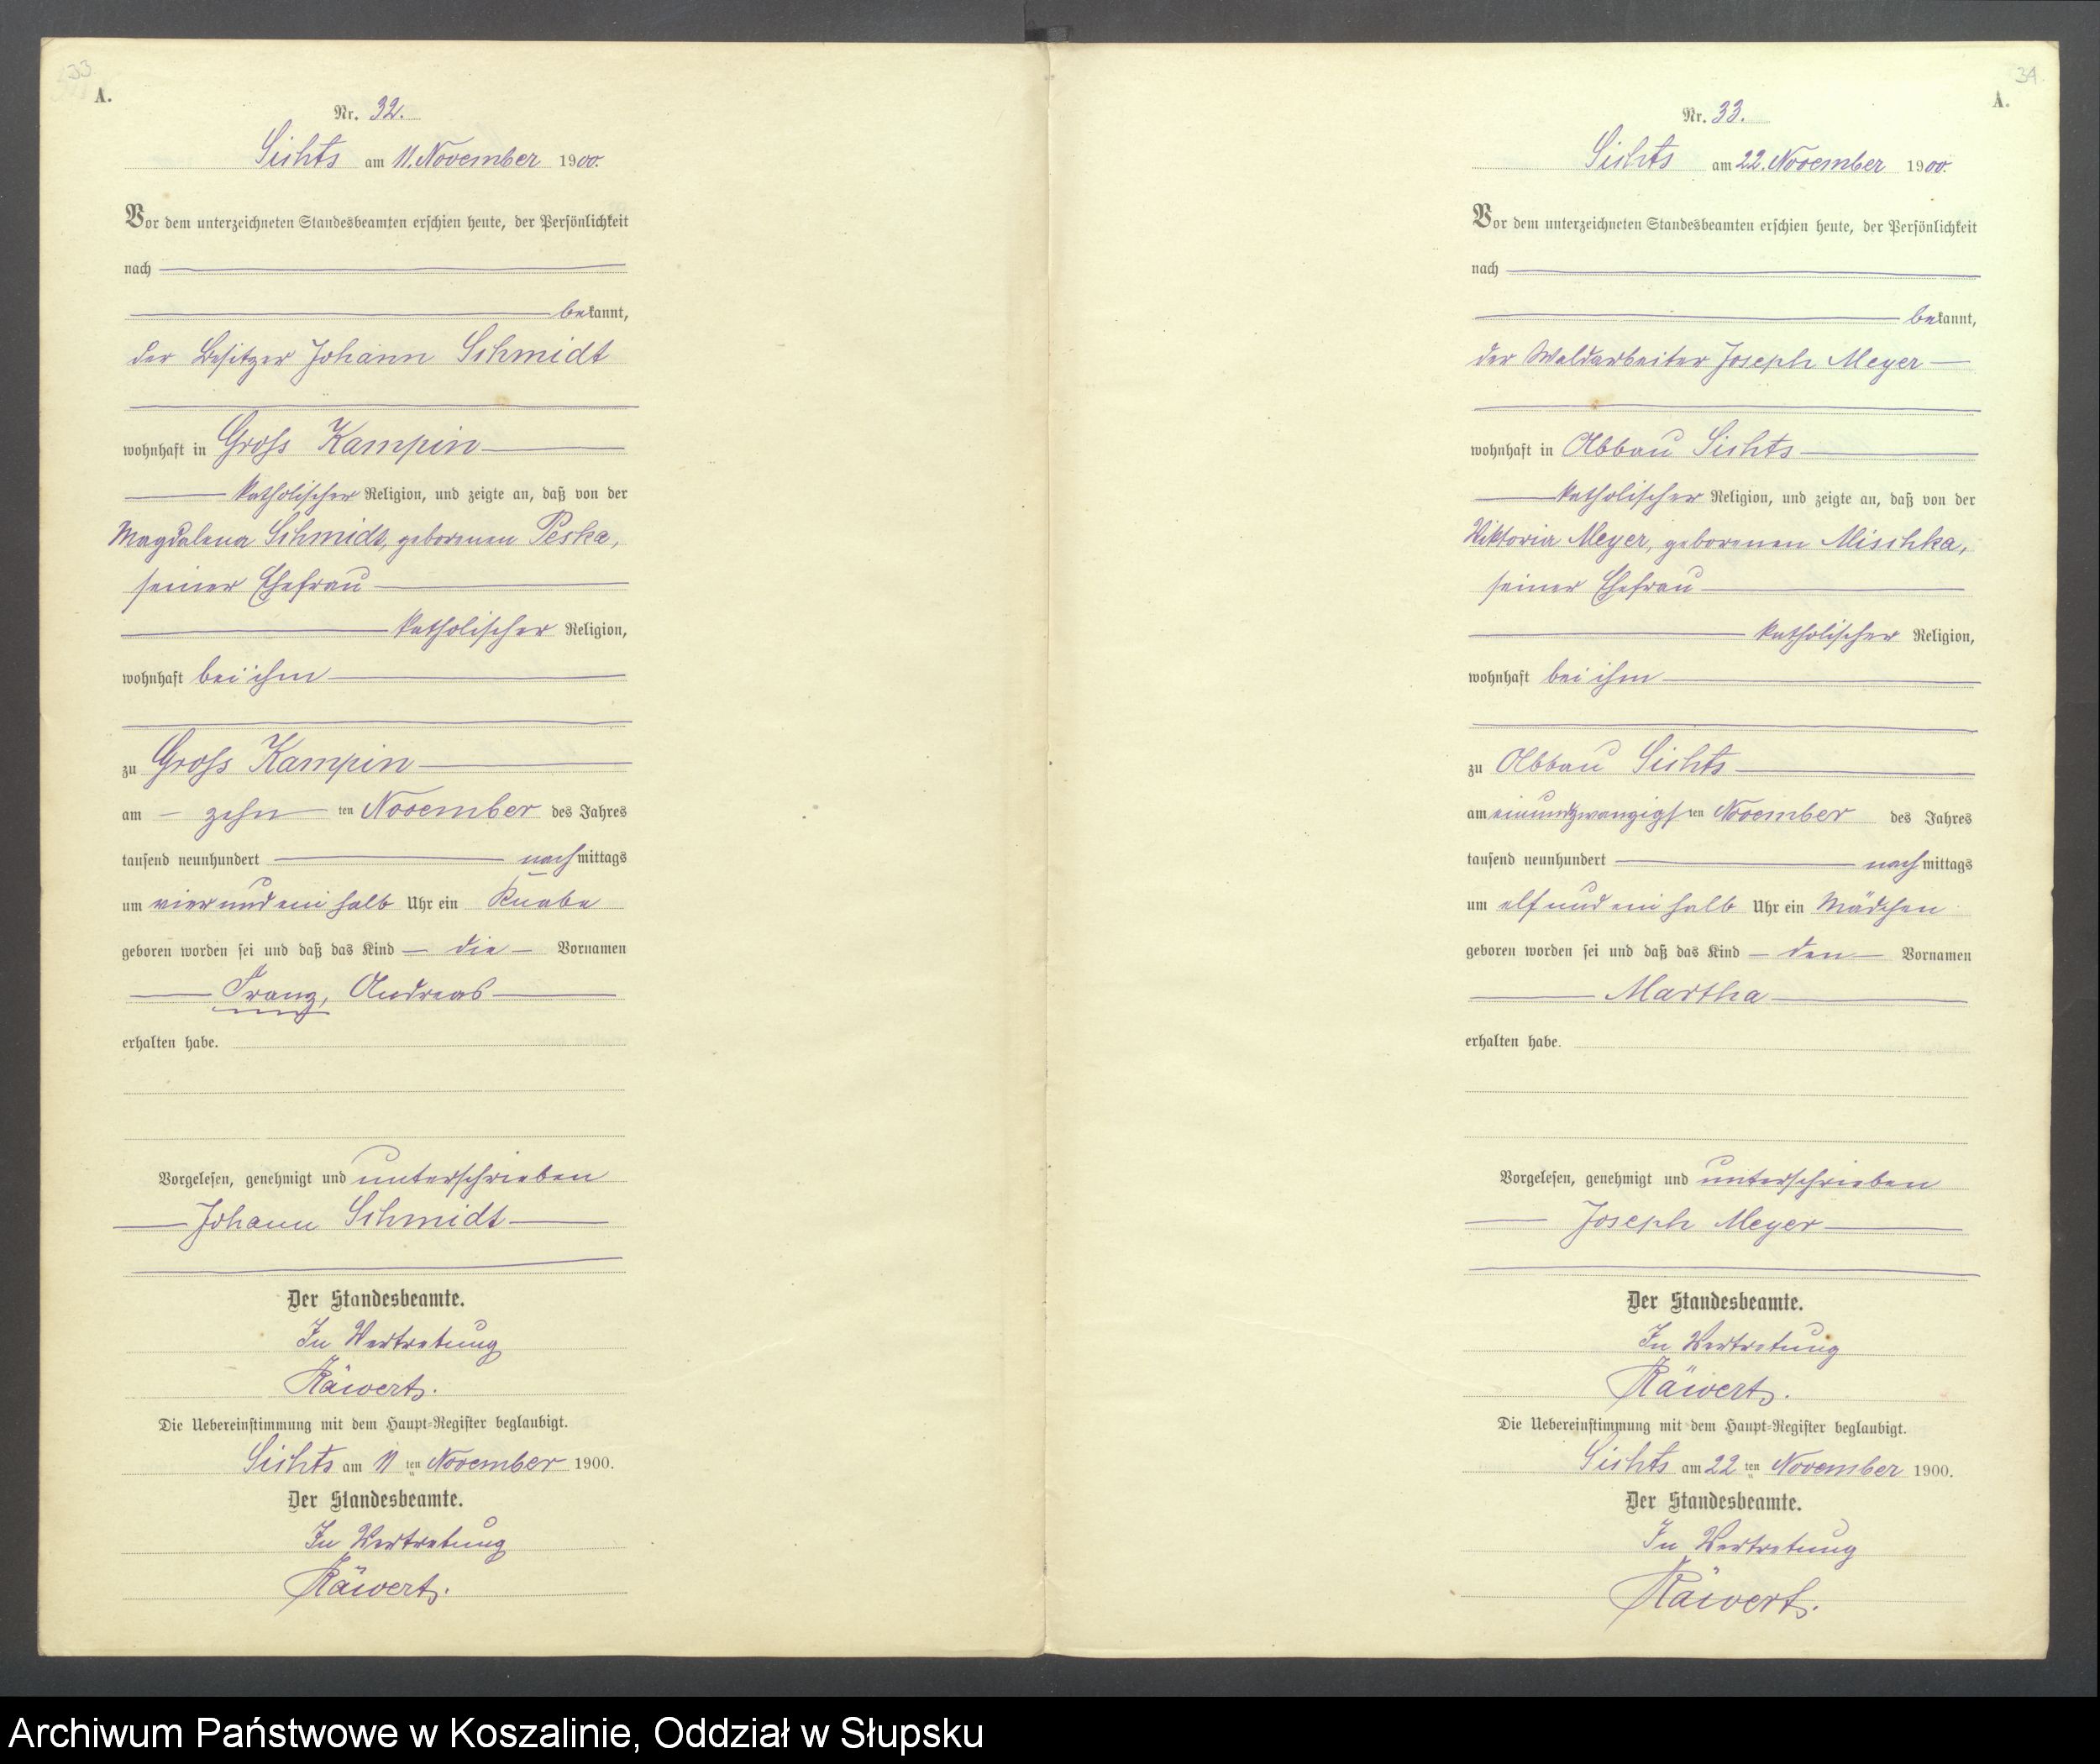 33
A.
Nr. 32.
Sichts am 11. November 1900.
Vor dem unterzeichneten Standesbeamten erschien heute, der Persönlichkeit
nach
bekannt,
der Besitzer Johann Schmidt
wohnhaft in Gross Kampin
katholischer Religion, und zeigte an, daß von der
Magdalena Schmidt, geborenen Peska,
seiner Ehefrau
katholischer Religion,
wohnhaft bei ihm
zu Gross Kampin
am zehn ten November des Jahres
tausend neunhundert nachmittags
um vier und ein halb Uhr ein Knabe
geboren worden sei und daß das Kind die Vornamen
Franz, Andreas
erhalten habe.
Vorgelesen, genehmigt und unterschrieben
Johann Schmidt
Der Standesbeamte.
In Vertretung
Räwert.
Die Uebereinstimmung mit dem Haupt-Register beglaubigt.
Sichts am 11 ten November 1900.
Der Standesbeamte.
In Vertretung
Räwert.
34
A.
Nr. 33.
Sichts am 22. November 1900.
Vor dem unterzeichneten Standesbeamten erschien heute, der Persönlichkeit
nach
bekannt,
der Waldarbeiter Joseph Meyer
wohnhaft in Abbau Sichts
katholischer Religion, und zeigte an, daß von der
Viktoria Meyer, geborenen Mischka,
seiner Ehefrau
katholischer Religion,
wohnhaft bei ihm
zu Abbau Sichts
am einundzwanzigsten November des Jahres
tausend neunhundert nachmittags
um elf und ein halb Uhr ein Mädchen
geboren worden sei und daß das Kind den Vornamen
Martha
erhalten habe.
Vorgelesen, genehmigt und unterschrieben
Joseph Meyer
Der Standesbeamte.
In Vertretung
Räwert.
Die Uebereinstimmung mit dem Haupt-Register beglaubigt.
Sichts am 22 ten November 1900.
Der Standesbeamte.
In Vertretung
Räwert.
Archiwum Państwowe w Koszalinie, Oddział w Słupsku